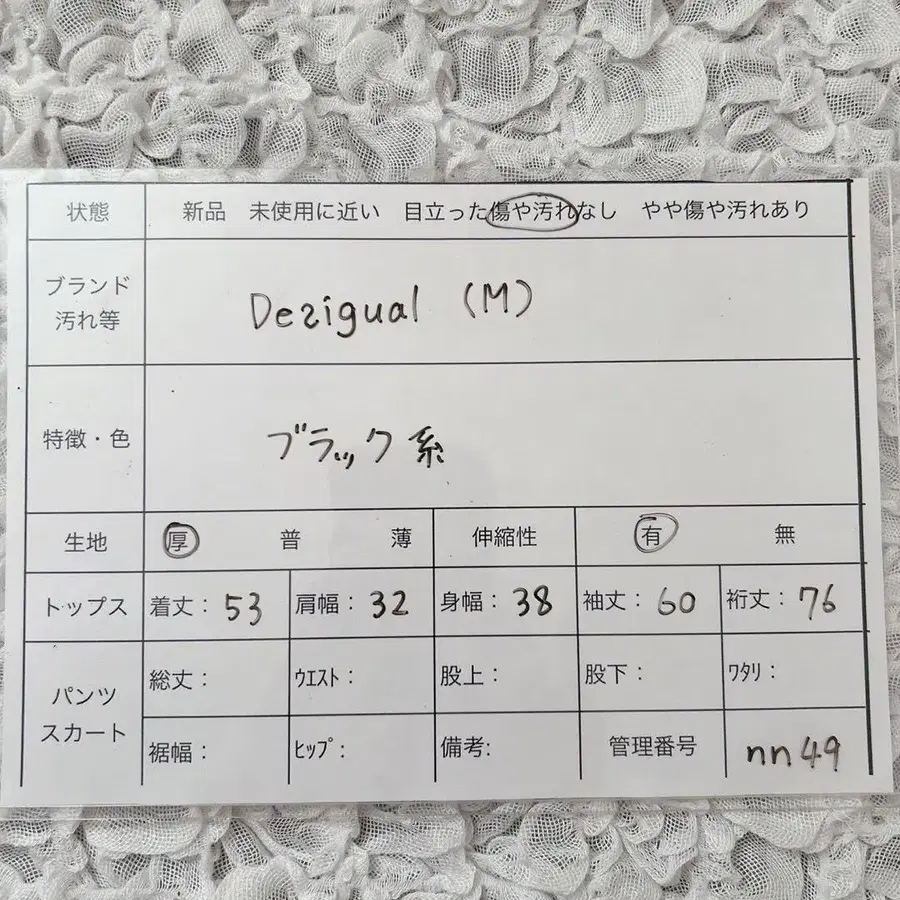 状態 新品 未使用に近い 目立った傷や汚れなし やや傷や汚れあり
ブランド
汚れ等
Desigual (M)
特徴・色 ブラック系
生地 厚 普 薄 伸縮性 有 無
トップス 着丈: 53 肩幅: 32 身幅: 38 袖丈: 60 裄丈: 76
パンツ
スカート
総丈: ウエスト: 股上: 股下: ワタリ:
裾幅: ヒップ: 備考: 管理番号 nn49